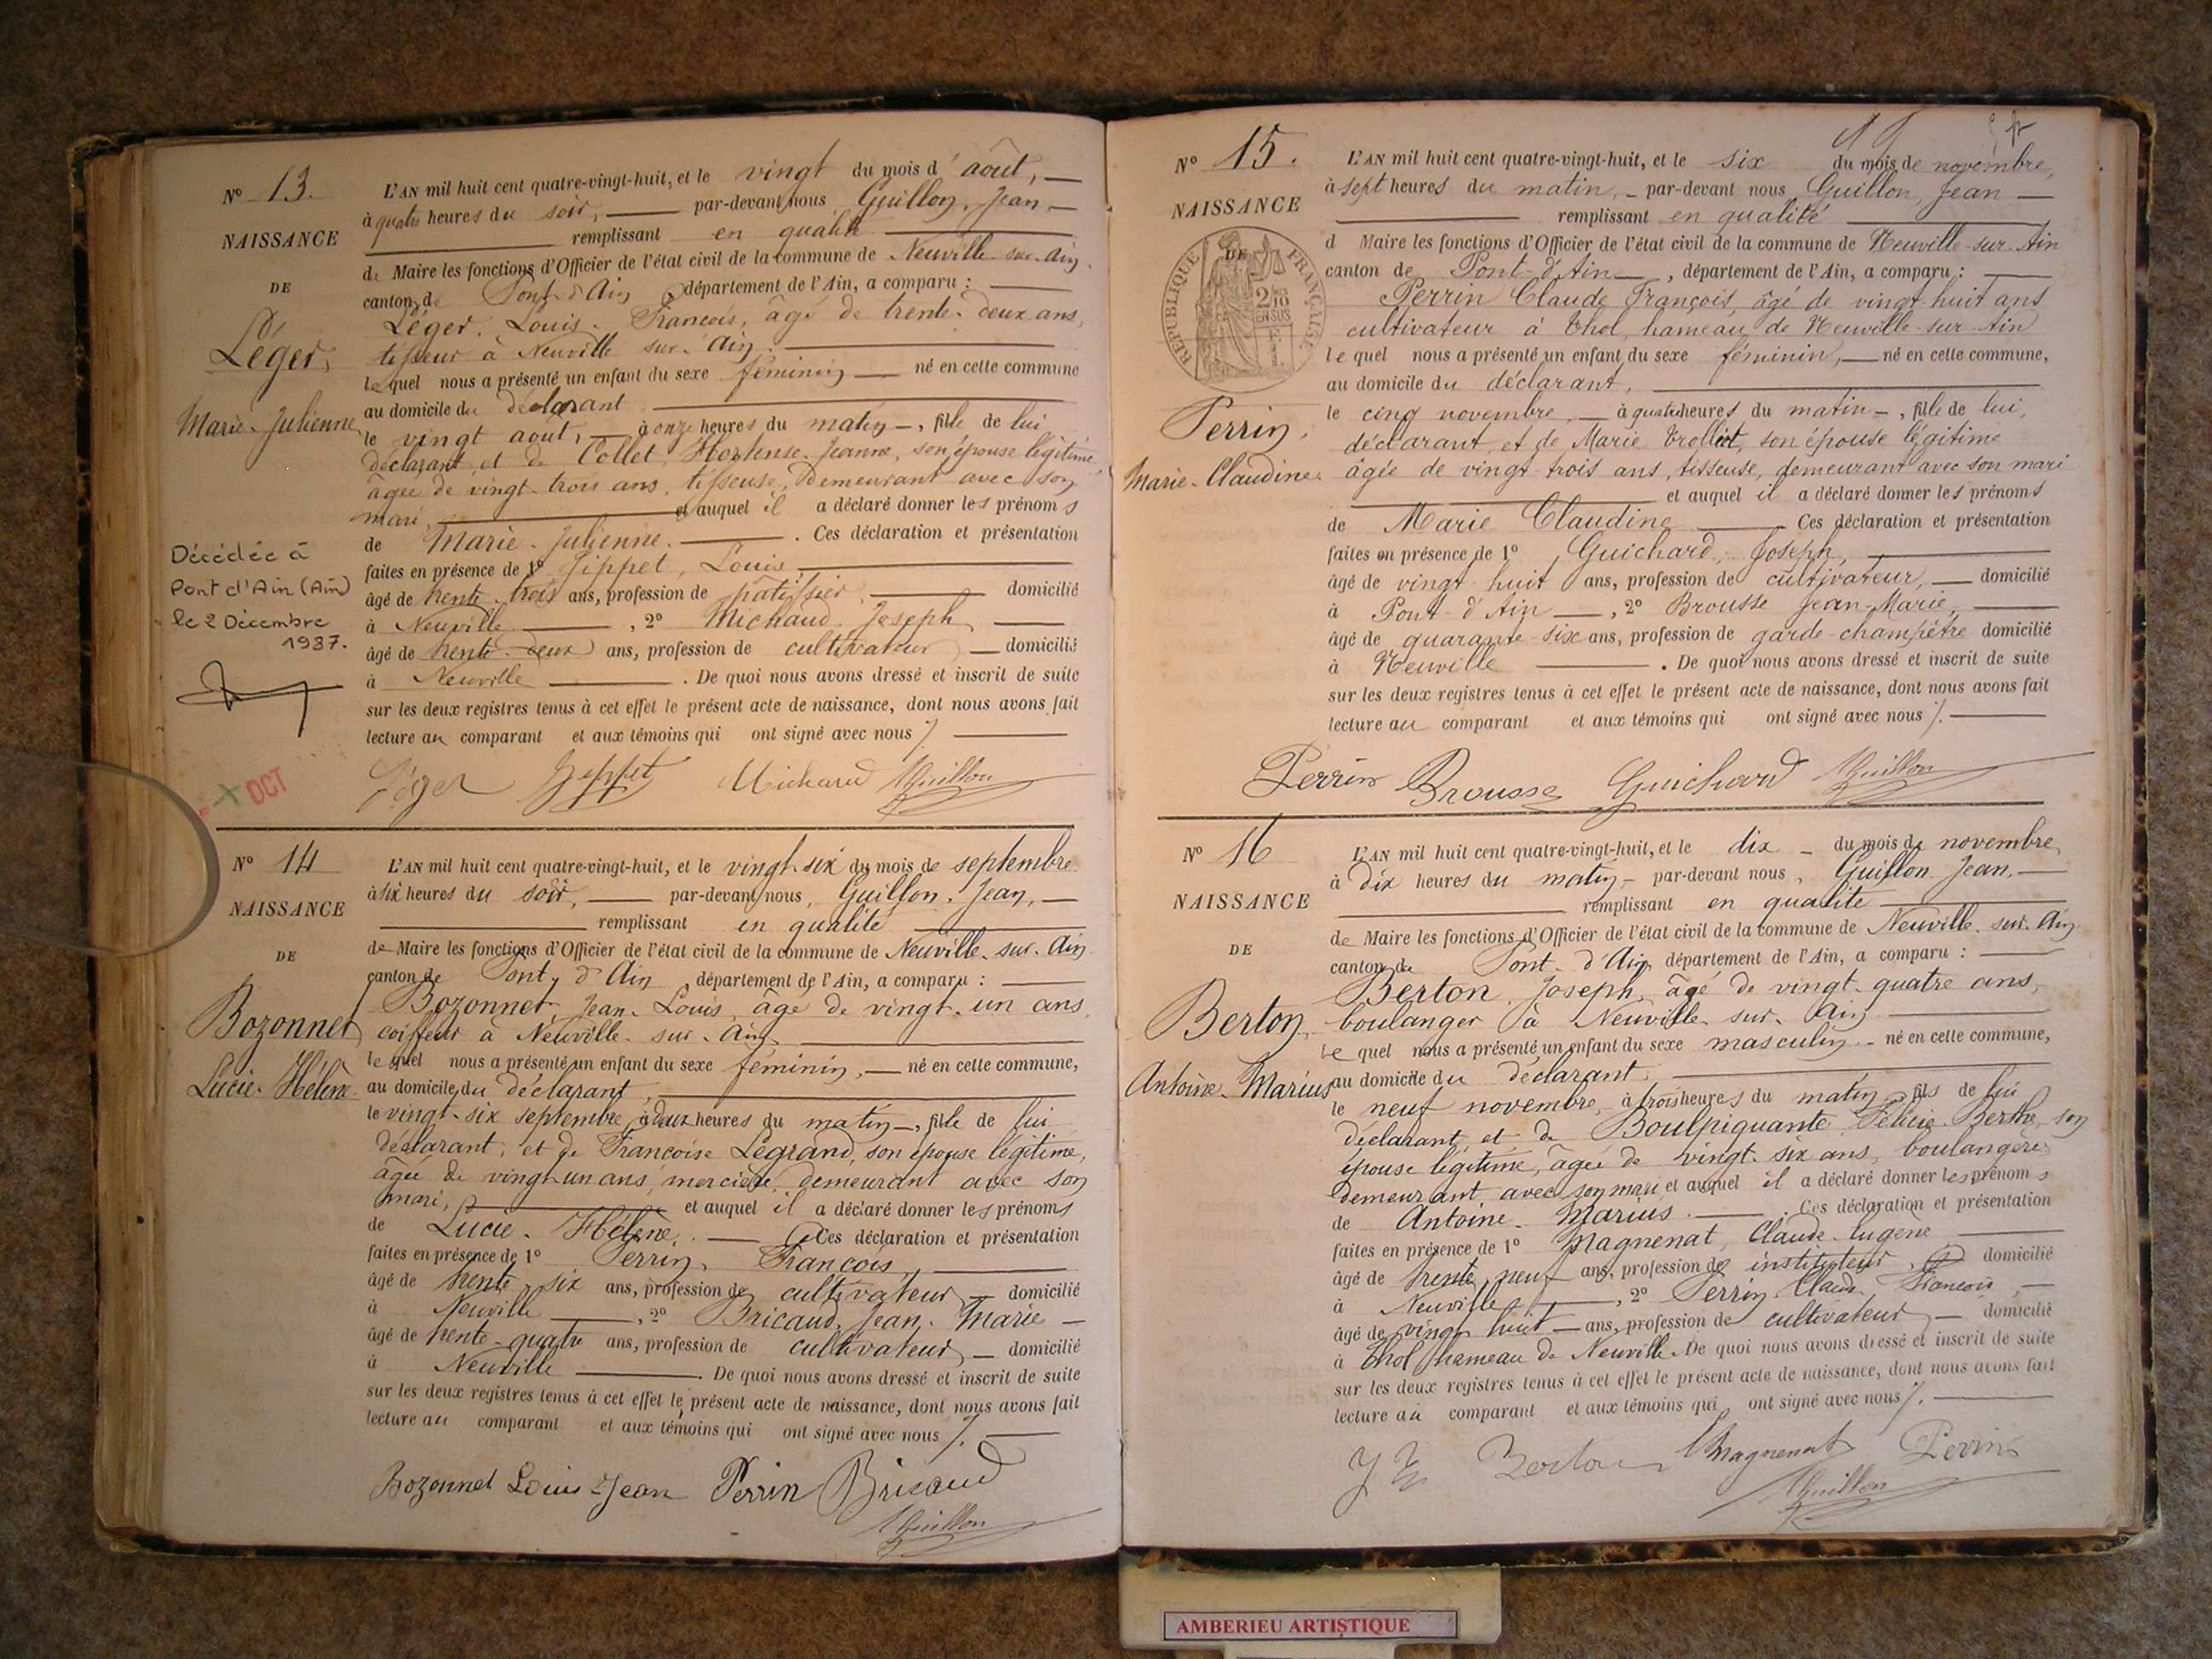 Nº 13.
NAISSANCE
DE
Léger,
Marie-Julienne
Décédée à
Pont d'Ain (Ain)
le 2 Décembre
1937.
OCT
L'AN mil huit cent quatre-vingt-huit, et le vingt du mois d'août,
à quatre heures du soir, par-devant nous Guillon, Jean
remplissant en qualité
de Maire les fonctions d'Officier de l'état civil de la commune de Neuville-sur-Ain
canton de Pont d'Ain, département de l'Ain, a comparu :
Léger, Louis-François, âgé de trente-deux ans,
tisseur à Neuville-sur-Ain.
lequel nous a présenté un enfant du sexe féminin né en cette commune
au domicile du déclarant
le vingt août, à onze heures du matin, fille de lui
déclarant, et de Collet, Hortense-Jeanne, son épouse légitime,
âgée de vingt-trois ans, tisseuse, demeurant avec son
mari, et auquel il a déclaré donner les prénoms
de Marie-Julienne. Ces déclaration et présentation
faites en présence de 1º Louis,
âgé de trente-trois ans, profession de pâtissier, domicilié
à Neuville, 2º Michaud Joseph,
âgé de trente-deux ans, profession de cultivateur domicilié
à Neuville. De quoi nous avons dressé et inscrit de suite
sur les deux registres tenus à cet effet le présent acte de naissance, dont nous avons fait
lecture au comparant et aux témoins qui ont signé avec nous ./.
Léger Michaud Guillon
Nº 14
NAISSANCE
DE
Bozonnet
Lucie-Hélène.
L'AN mil huit cent quatre-vingt-huit, et le vingt-six du mois de septembre
à six heures du soir, par-devant nous, Guillon, Jean,
remplissant en qualité
de Maire les fonctions d'Officier de l'état civil de la commune de Neuville-sur-Ain
canton de Pont-d'Ain, département de l'Ain, a comparu :
Bozonnet, Jean-Louis, âgé de vingt-un ans,
coiffeur à Neuville-sur-Ain,
lequel nous a présenté un enfant du sexe féminin, né en cette commune,
au domicile du déclarant,
le vingt-six septembre, à deux heures du matin, fille de lui
déclarant, et de Françoise Legrand, son épouse légitime,
âgée de vingt-un ans, mercière, demeurant avec son
mari, et auquel il a déclaré donner les prénoms
de Lucie-Hélène. Ces déclaration et présentation
faites en présence de 1º Perrin, François,
âgé de trente-six ans, profession de cultivateur domicilié
à Neuville, 2º Bricaud, Jean-Marie
âgé de trente-quatre ans, profession de cultivateur domicilié
à Neuville. De quoi nous avons dressé et inscrit de suite
sur les deux registres tenus à cet effet le présent acte de naissance, dont nous avons fait
lecture au comparant et aux témoins qui ont signé avec nous ./.
Bozonnet Louis-Jean Perrin Bricaud
Guillon
Nº 15.
NAISSANCE
DE
RÉPUBLIQUE FRANÇAISE
Perrin,
Marie-Claudine.
L'AN mil huit cent quatre-vingt-huit, et le six du mois de novembre,
à sept heures du matin, par-devant nous Guillon Jean
remplissant en qualité
d Maire les fonctions d'Officier de l'état civil de la commune de Neuville-sur-Ain
canton de Pont-d'Ain, département de l'Ain, a comparu :
Perrin Claude François, âgé de vingt-huit ans
cultivateur à Thol, hameau de Neuville-sur-Ain
lequel nous a présenté un enfant du sexe féminin, né en cette commune,
au domicile du déclarant,
le cinq novembre, à quatre heures du matin, fille de lui,
déclarant, et de Marie Trolliet, son épouse légitime
âgée de vingt-trois ans, tisseuse, demeurant avec son mari
et auquel il a déclaré donner les prénoms
de Marie Claudine Ces déclaration et présentation
faites en présence de 1º Guichard, Joseph,
âgé de vingt-huit ans, profession de cultivateur, domicilié
à Pont-d'Ain, 2º Brousse Jean-Marie,
âgé de quarante-six ans, profession de garde-champêtre domicilié
à Neuville. De quoi nous avons dressé et inscrit de suite
sur les deux registres tenus à cet effet le présent acte de naissance, dont nous avons fait
lecture au comparant et aux témoins qui ont signé avec nous ./.
Perrin Brousse Guichard Guillon
Nº 16
NAISSANCE
DE
Berton,
Antoine-Marius
L'AN mil huit cent quatre-vingt-huit, et le dix du mois de novembre,
à dix heures du matin, par-devant nous, Guillon Jean,
remplissant en qualité
de Maire les fonctions d'Officier de l'état civil de la commune de Neuville-sur-Ain
canton de Pont-d'Ain, département de l'Ain, a comparu :
Berton, Joseph, âgé de vingt-quatre ans,
boulanger à Neuville-sur-Ain
lequel nous a présenté un enfant du sexe masculin né en cette commune,
au domicile du déclarant,
le neuf novembre, à trois heures du matin, fils de lui
déclarant, et de Boulpiquante, Félicie-Berthe, son
épouse légitime, âgée de vingt-six ans, boulangère
demeurant avec son mari et auquel il a déclaré donner les prénoms
de Antoine-Marius. Ces déclaration et présentation
faites en présence de 1º Magnenat, Claude-Eugène
âgé de trente-neuf ans, profession de instituteur, domicilié
à Neuville, 2º Perrin Claude François,
âgé de vingt-huit ans, profession de cultivateur domicilié
à Thol hameau de Neuville. De quoi nous avons dressé et inscrit de suite
sur les deux registres tenus à cet effet le présent acte de naissance, dont nous avons fait
lecture au comparant et aux témoins qui ont signé avec nous ./.
Berton Magnenat Perrin
Guillon
AMBERIEU ARTISTIQUE